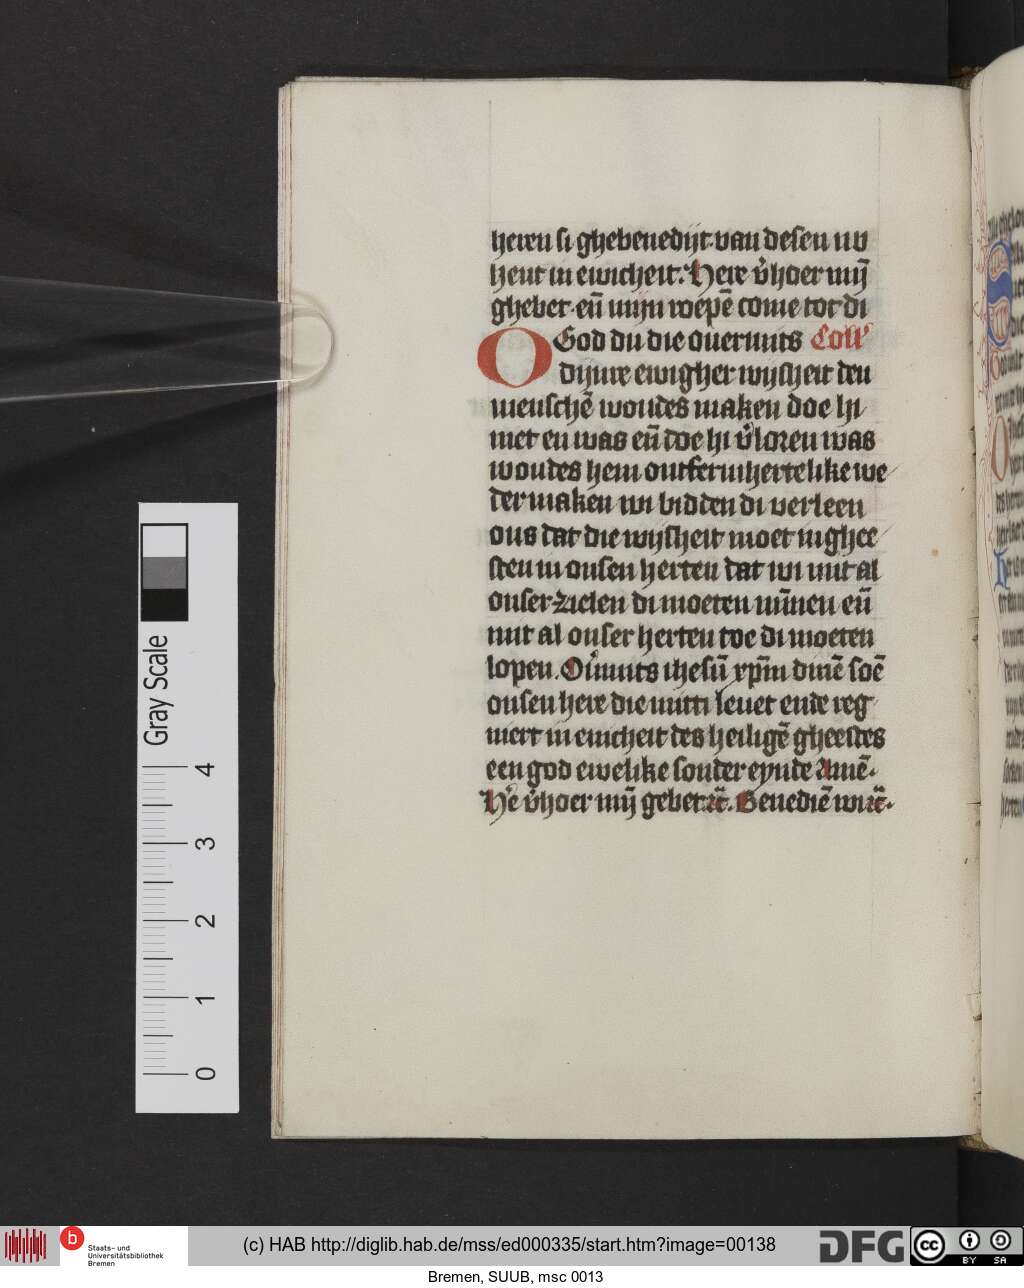 heren si ghebenedijt van desen nv
hent in ewicheit. Here v̉hoer mij̄
ghebet en̄ mijn roepē come tot di
O God du die ouermits Coll'
dijnre ewigher wijsheit den
menschē woudes maken doe hi
niet en was en̄ doe hi v̉loren was
woudes hem ontfermhertelike we
der maken wi bidden di verleen
ons dat die wijsheit moet inghee
sten in onsen herten dat wi mit al
onser zielen di moeten mīnen en̄
mit al onser herten toe di moeten
lopen. Ou̓mits ihesū xp̄m dinē soē
onsen here die mitti leuet ende reg
niert in enicheit des heiligē gheestes
een god ewelike sonder eynde Amē.
He̓ v̉hoer mij̄ gebet ꝛc̄. Benediē wi ꝛc̄.
Gray Scale
4
3
2
1
0
b
Staats- und
Universitätsbibliothek
Bremen
(c) HAB http://diglib.hab.de/mss/ed000335/start.htm?image=00138
DFG
cc
BY SA
Bremen, SUUB, msc 0013